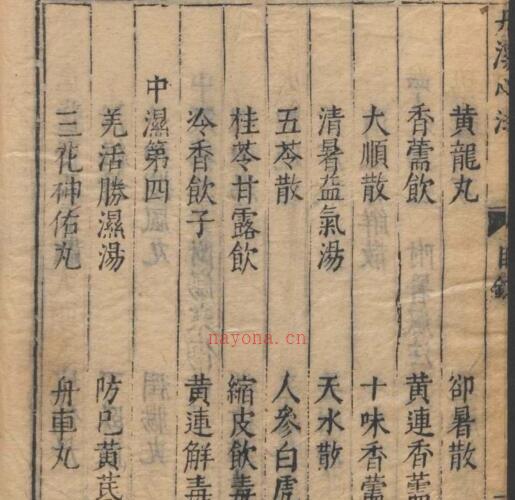 丹溪心法 目錄
黃龍丸 卻暑散
香薷飲 黃連香薷
大順散 十味香薷
清暑益氣湯 天水散
五苓散 人參白虎
桂苓甘露飲 縮皮飲
冷香飲子 黃連解毒
中濕第四
羌活勝濕湯 防巳黃芪
三花神佑丸 舟車丸
nayona.cn